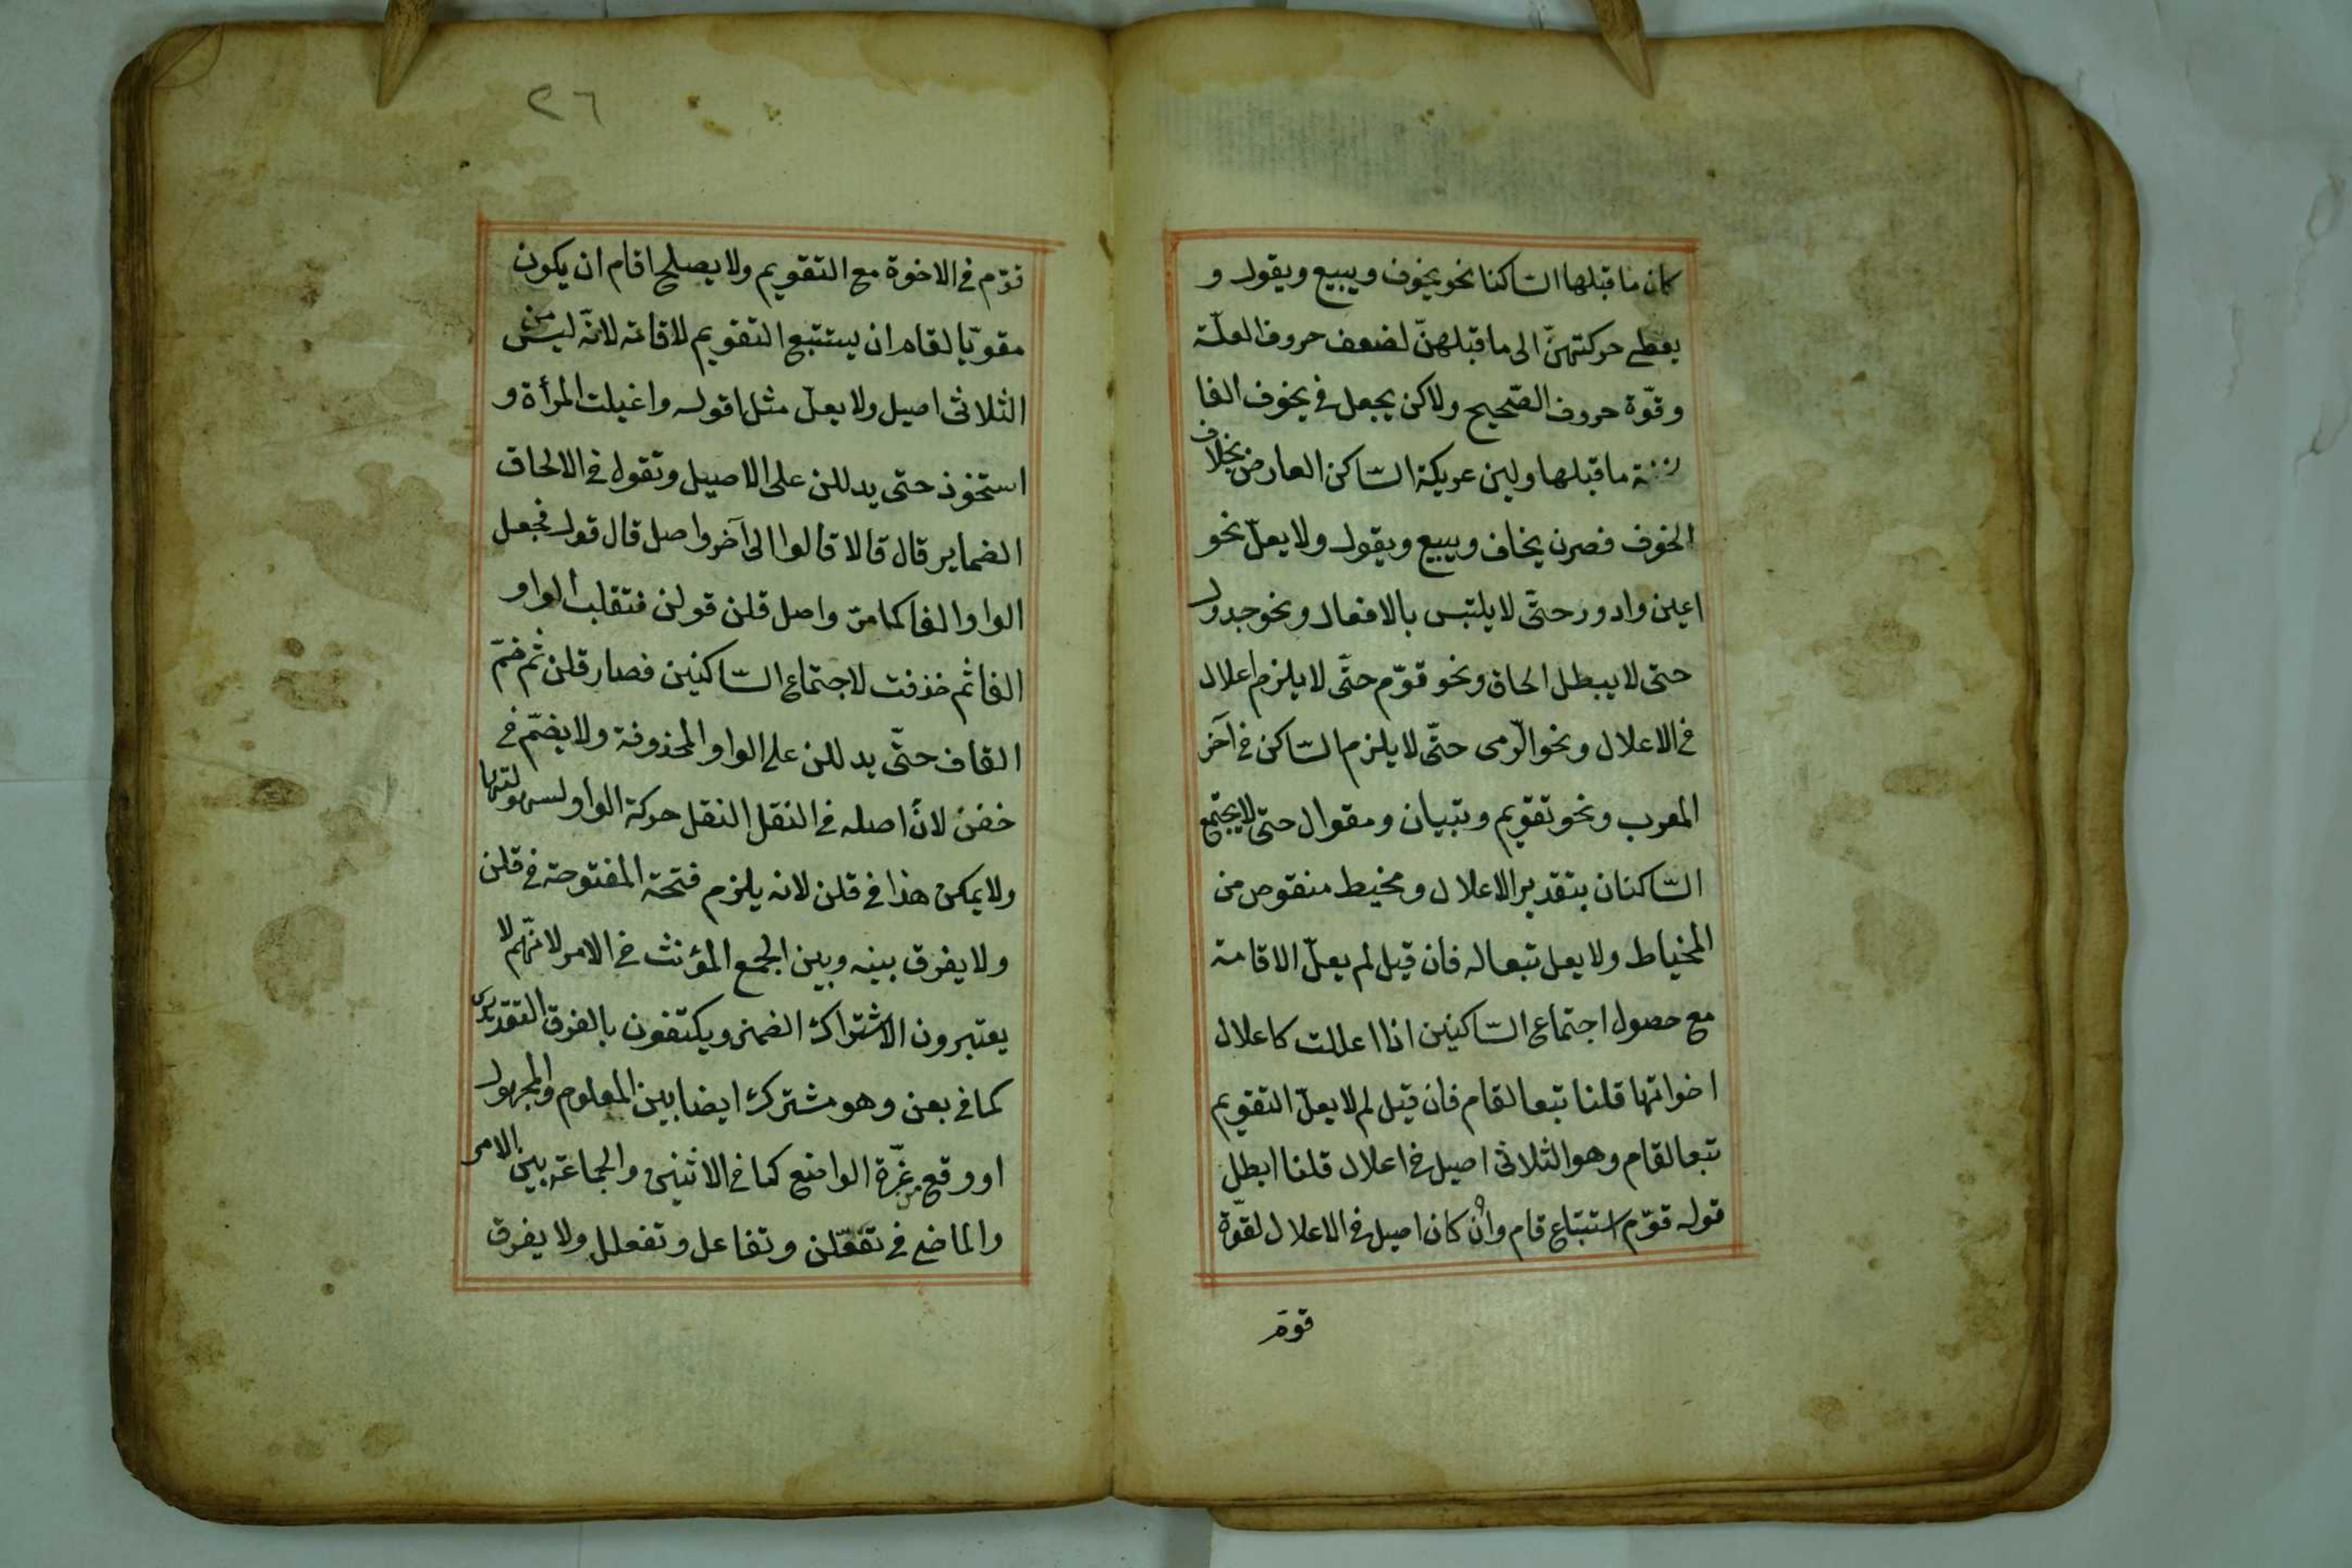 كان ما قبلها الساكنا نحو يخوف ويبيع ويقول و
يعطى حركتهنّ الى ما قبلهنّ لضعف حروف العلّة
وقوّة حروف الصّحيح ولاكن يجعل في يخوف الفا
ما قبلها ولين عريكة السّاكن العارض بخلاف
الخوف فصرن يخاف ويبيع ويقول ولا يعلّ نحو
اعين وادور حتّى لا يلتبس بالافعال ونحو جدول
حتى لا يبطل الحاق ونحو قوّم حتّى لا يلزم اعلال
في الاعلال ونحو الرّمى حتّى لا يلزم السّاكن في آخر
المعرب ونحو تقويم وتبيان ومقوال حتّى لا يجتمع
السّاكنان بتقدير الاعلال ومخيط منقوص من
المخياط ولا يعل تبعا له فان قيل لم يعلّ الاقامة
مع حصول اجتماع السّاكنين اذا اعللت كاعلال
اخواتها قلنا تبعا لقام فان قيل لم لا يعلّ التقويم
تبعا لقام وهو الثلاثى اصيل في اعلال قلنا ابطل
قوله قوّم استتباع قام وان كان اصيل في الاعلال لقوّة
قوم
٢٦
قوّم في الاخوة مع التقويم ولا يصلح اقام ان يكون
مقويّا لقام ان يستتبع التقويم لاقامة لانّه ليس من
الثلاثى اصيل ولا يعلّ مثل اقوله واغيلت المرأة و
استخوذ حتى يدللن على الاصيل وتقول في الالحاق
الضماير قال قالا قالوا الى آخر واصل قال قول فجعل
الواو الفا كما مرّ واصل قلن قولن فتقلب الواو
الفا ثم خذفت لاجتماع السّاكنين فصار قلن ثم ضمّ
القاف حتّى يدللن على الواو المحذوفة ولا يضمّ في
خفن لانّ اصله في النقل النقل حركة الواو لسهولتها
ولا يمكن هذا في قلن لانه يلزم فتحة المفتوحة في قلن
ولا يفرق بينه وبين الجمع المؤنث في الامر لانّهم لا
يعتبرون الاشتراك الضمنى ويكتفون بالفرق التقديرى
كما في بعن وهو مشترك ايضا بين المعلوم والمجهول
او وقع من غرّة الواضع كما في الاثنين والجماعة بين الامر
والماضى في تفعّلن وتفاعل وتفعلل ولا يفرق